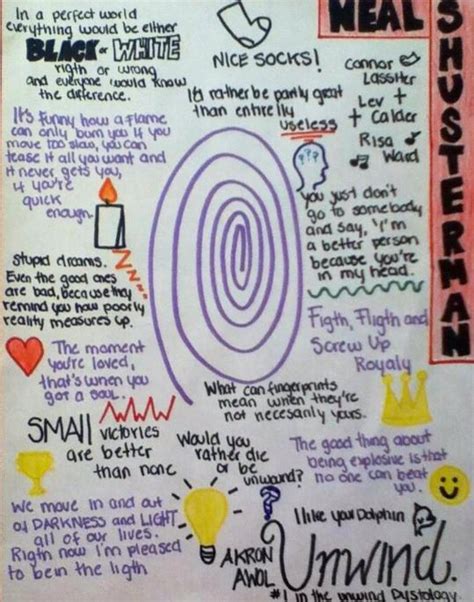 In a perfect world
everything would be either
BLACK or WHITE
rigth or wrong
and everyone would know
the difference.
NICE SOCKS!
NEAL
SHUSTERMAN
Connor
Lassiter
+
Lev + Calder
+
Risa
Ward
It's rather be partly great
than entirelly
useless
It's funny how a flame
can only burn you if you
move too slow, you can
tease it all you want and
it never gets you,
if you're
quick
enough.
???
you just don't
go to somebody
and say, "I'm
a better person
because you're
in my head.
Stupid dreams.
Even the good ones
are bad, because they
remind you how poorly
reality measures up.
zzz
Figth, Fligth and
Screw Up
Royaly
The moment
you're loved,
that's when you
got a soul.
What can fingerprints
mean when they're
not necesarily yours.
SMALL victories
are better
than none
Would you
rather die
or be
unwound?
The good thing about
being explosive is that
no one can beat
you.
We move in and out
of DARKNESS and LIGHT
all of our lives.
Rigth now I'm pleased
to be in the ligth
I like your Dolphin
AKRON
AWOL
Unwind.
#1 in the unwind Dystology